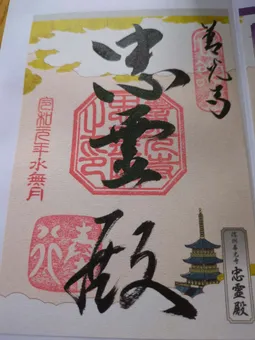 善光寺
忠霊殿
令和元年水無月
信州善光寺
忠霊殿